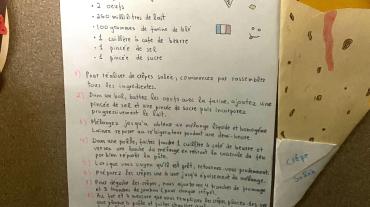 • 2 oeufs
• 250 millilitres de lait
• 100 grammes de farine de blé
• 1 cuillère à café de beurre
• 1 pincée de sel
• 1 pincée de sucre
1) Pour réaliser de crêpes salées, commencez par rassembler
tous les ingrédients.
2) Dans un bol, battez les oeufs avec la farine, ajoutez une
pincée de sel et une pincée de sucre puis incorporez
progressivement le lait.
3) Mélangez jusqu'à obtenir un mélange liquide et homogène
Laissez reposer au réfrigérateur pendant une demi-heure.
4) Dans une poêle, faites fondre 1 cuillère à café de beurre et
versez une louche du mélange en remuant
bien répartir la pâte.
5) Lorsque vous voyez qu'il est prêt, retournez-
6) Préparez les crêpes une à une jusqu'à épuisement du mélange.
7) Pour les crêpes, nous ajouterons 4 tranches de fromage
et 3 tranches de jambon pour chaque crêpe.
8) Au fur et à mesure que vous remplissez les crêpes, placez-les sur
Crêpe
Salée